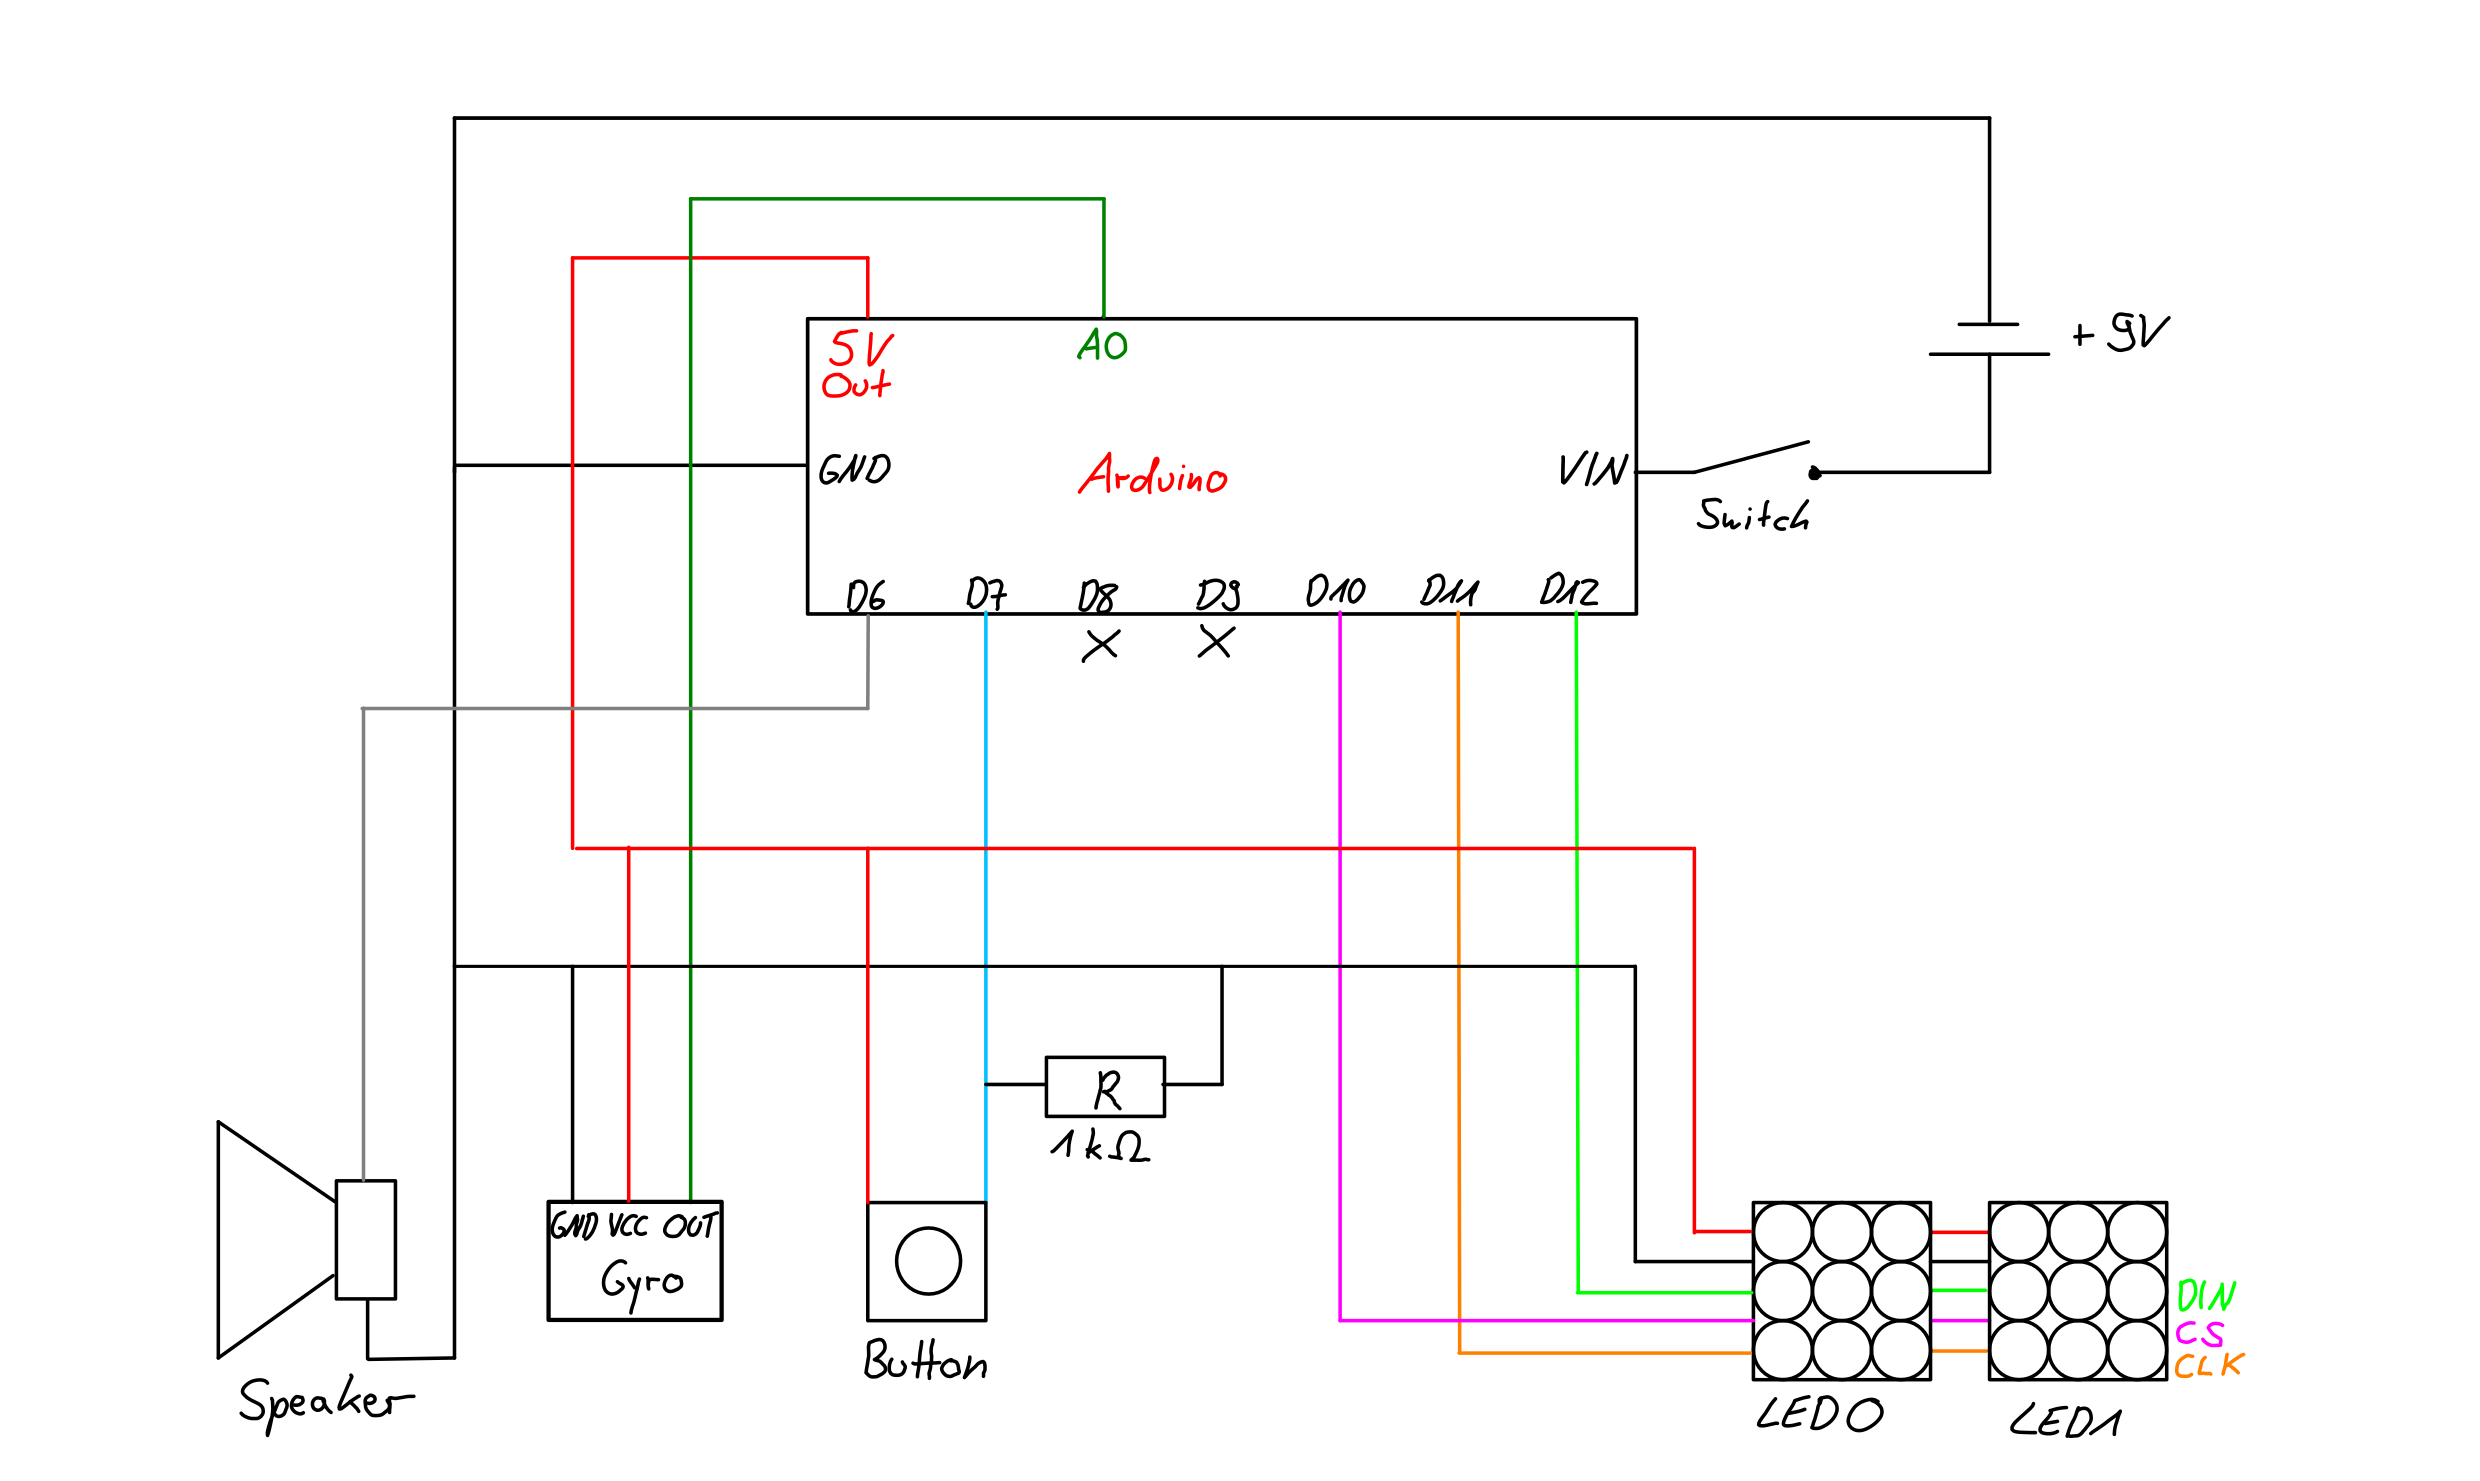 5V
Out
A0
+ 9V
GND
Arduino
VIN
Switch
D6 D7 D8 D9 D10 D11 D12
X X
R
1kΩ
GND VCC OUT
Gyro
Button
Speaker
DIN
CS
CLK
LED0
LED1